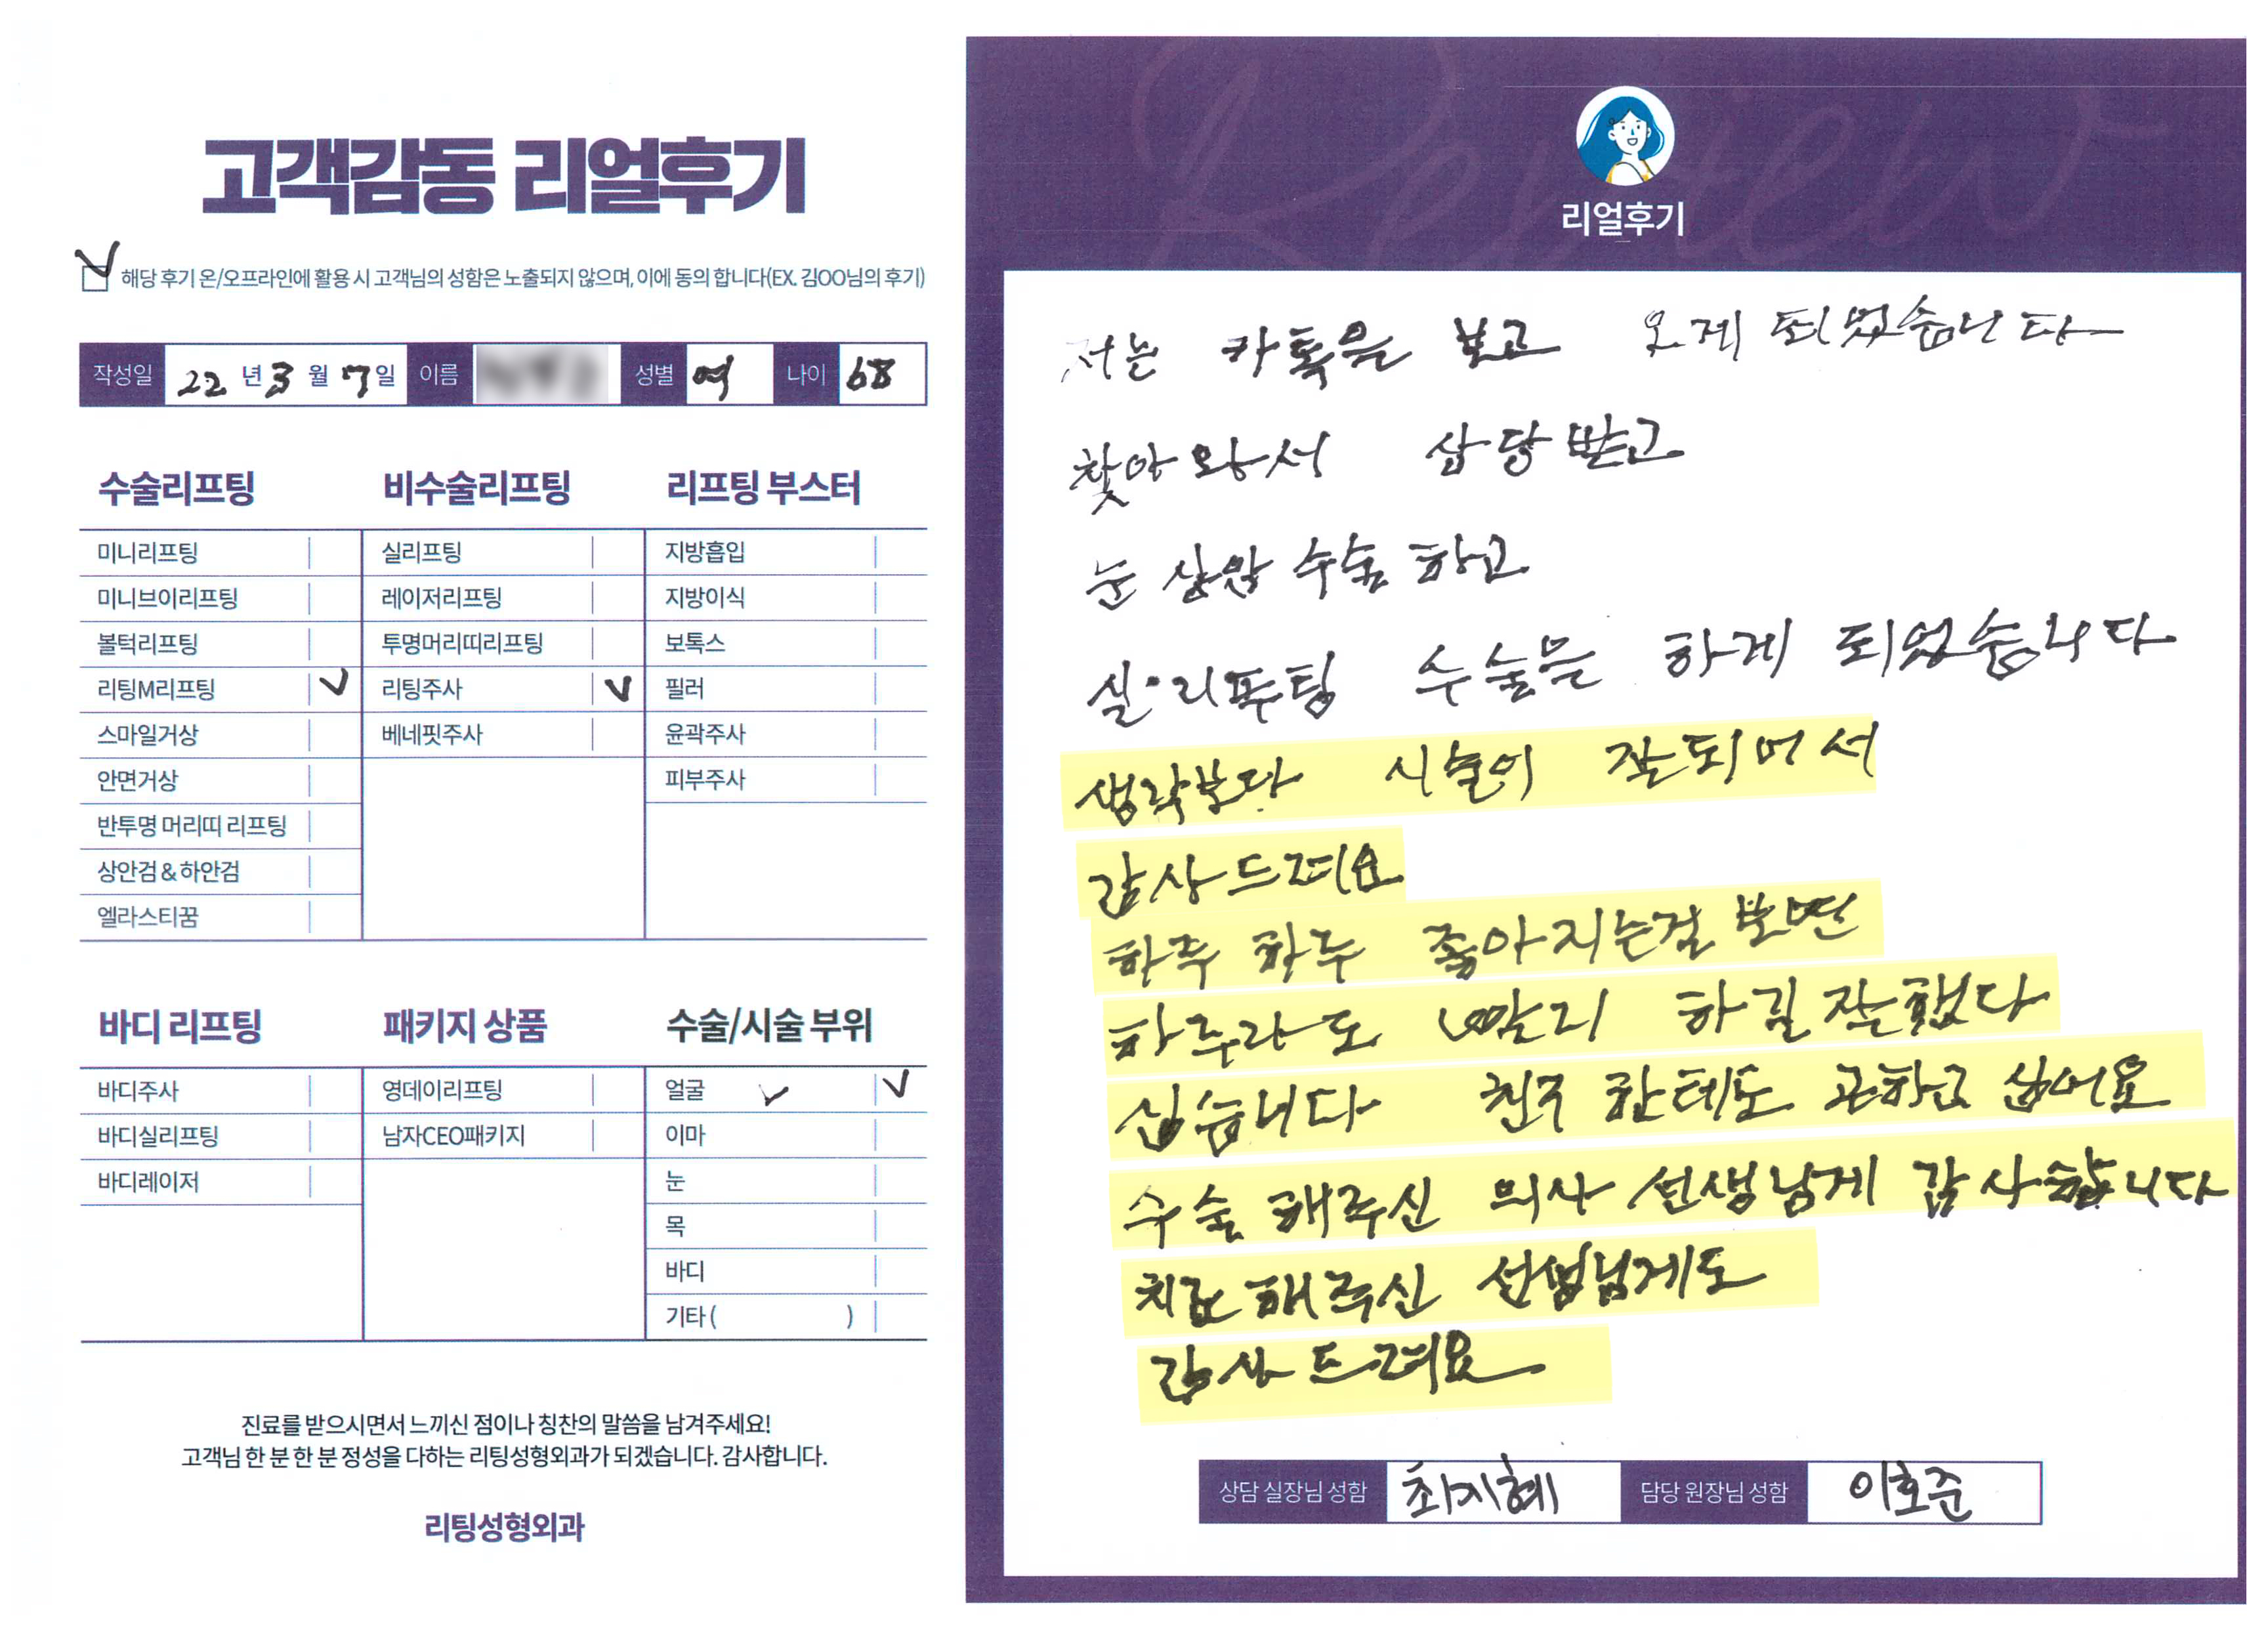 고객감동 리얼후기
해당 후기 온/오프라인에 활용 시 고객님의 성함은 노출되지 않으며, 이에 동의 합니다(EX. 김OO님의 후기)
작성일 22 년 3 월 7 일 이름 성별 여 나이 68
수술리프팅
미니리프팅
미니브이리프팅
볼턱리프팅
리팅M리프팅
스마일거상
안면거상
반투명 머리띠 리프팅
상안검 & 하안검
엘라스티꿈
비수술리프팅
실리프팅
레이저리프팅
투명머리띠리프팅
리팅주사
베네핏주사
리프팅 부스터
지방흡입
지방이식
보톡스
필러
윤곽주사
피부주사
바디 리프팅
바디주사
바디실리프팅
바디레이저
패키지 상품
영데이리프팅
남자CEO패키지
수술/시술 부위
얼굴
이마
눈
목
바디
기타 ( )
진료를 받으시면서 느끼신 점이나 칭찬의 말씀을 남겨주세요!
고객님 한 분 한 분 정성을 다하는 리팅성형외과가 되겠습니다. 감사합니다.
리팅성형외과
Review
리얼후기
저는 카톡을 보고 오게 되었습니다
찾아 와서 상당 받고
눈 상암 수술 하고
실·리푸팅 수술을 하게 되었습니다
생각보다 시술이 잘되어서
감사 드려요
하루 하루 좋아지는걸 보면
하루라도 빨리 하길 잘했다
십습니다 친구 한테도 권하고 십어요
수술 해주신 의사 선생님게 감사합니다
치료 해주신 선생님게도
감사 드려요
상담 실장님 성함 최지혜 담당 원장님 성함 이호준